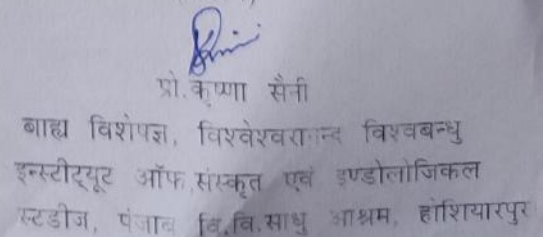 प्रो. कृष्णा सैनी
बाह्य विशेषज्ञ, विश्वेश्वरानन्द विश्वबन्धु
इन्स्टीट्यूट ऑफ संस्कृत एवं इण्डोलोजिकल
स्टडीज, पंजाब वि.वि. साधु आश्रम, होशियारपुर